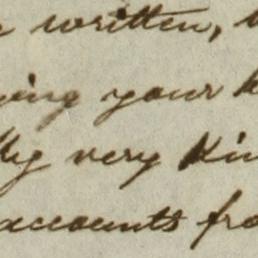 written,
ying your k
My very kin
accounts fro